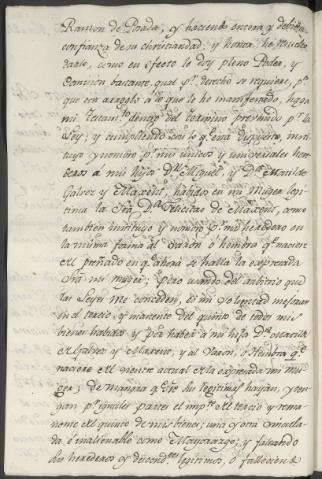 Ramon de Posada, y haciendo entera y debida
confianza de su christiandad, y honor, he resuelto
darle, como en efecto le doy pleno Poder, y
Comision bastante, qual pr. derecho se requiere, pa.
que con arreglo a lo que le he manifestado, haga
mi testamto. dentro del termino prevenido pr. la
Ley; y cumpliendo con lo qe. está dispuesto, insti-
tuyo y nombro pr. mis unicos y universales here-
deros a mi hijo Dn. Miguel, y Da. Matilde
Galvez y Maxent, habidos en mi Muger legi-
tima la Sra. Da. Felicitas de Maxent, como
tambien instituyo y nombro pr. mi heredero en
la misma forma al Varon ó hembra qe. naciere
del preñado en qe. ahora se halla la expresada
Sra. mi muger; pero usando del arbitrio que
las Leyes me conceden, es mi voluntad mejorar
en el tercio, y remanente del quinto de todos mis
bienes habidos y por haber á mi hija Da. Matilde
de Galvez y Maxent, y al Varon, ó hembra qe.
naciere del vientre actual de la expresada mi mu-
ger; de manera qe.
hijos legitimos hayan, y ten-
gan pr. iguales partes el impte. del tercio y rema-
nente del quinto de mis bienes; una y otra vincula-
da é inalienable como Mayorazgo; y faltando
sus herederos y descendtes. legitimos, ó falleciendo